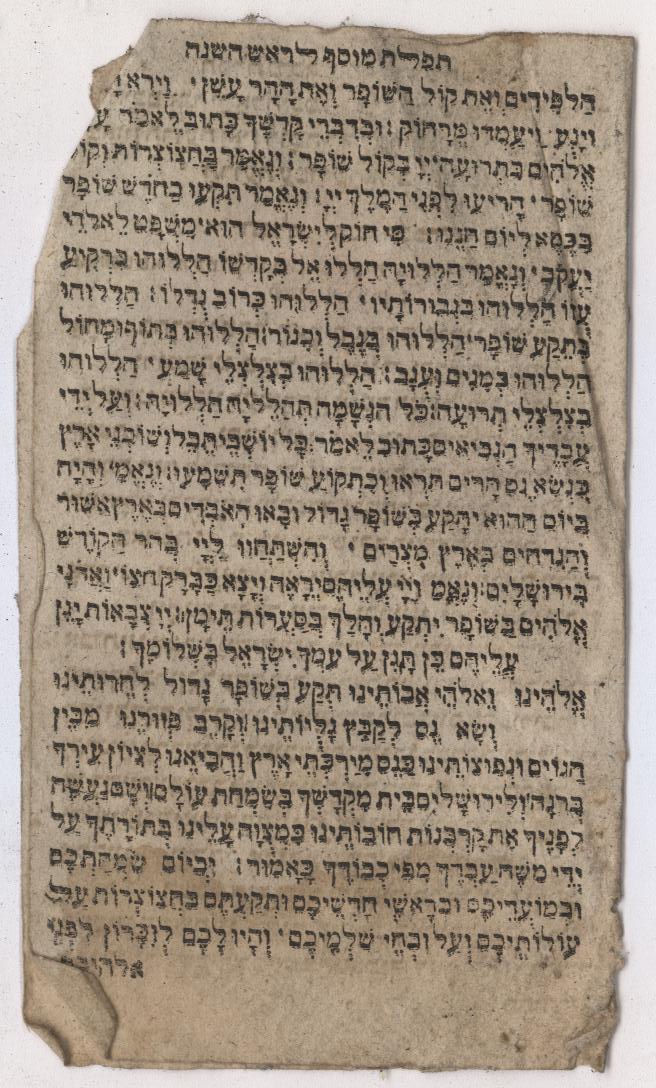 תפלת מוסף לראש השנה
הַלַפִּידִים וְאֵת קוֹל הַשּׁוֹפָר וְאֶת הָהָר עָשֵׁן׳ וַיַרְא
וַיָנֻעוּ וַיַעַמְדוּ מֵרָחוֹק׃ וּבְדִבְרֵי קָדְשְׁךָ כָּתוּב לֵאמֹר
אֱלֹהִים בִּתְרוּעָה יְיָ בְּקוֹל שׁוֹפָר׃ וְנֶאֱמַר בַּחֲצוֹצְרוֹת וְקוֹל
שׁוֹפָר׳ הָרִיעוּ לִפְנֵי הַמֶלֶךְ יְיָ׃ וְנֶאֱמַר תִּקְעוּ בַחֹדֶשׁ שׁוֹפָר
בַּכֶּסֶא לְיוֹם חַגֵנוּ׃ כִּי חוֹק לְיִשְׂרָאֵל הוּא׳ מִשְׁפָּט לֵאלֹהֵי
יַעֲקֹב׳ וְנֶאֱמַר הַלְלוּיָהּ הַלְלוּ אֵל בְּקָדְשׁוֹ הַלְלוּהוּ בִּרְקִיעַ
עֻזוֹ הַלְלוּהוּ בִּגְבוּרוֹתָיו׳ הַלְלוּהוּ כְּרוֹב גֻדְלוֹ׃ הַלְלוּהוּ
בְּתֵקַע שׁוֹפָר׳ הַלְלוּהוּ בְּנֵבֶל וְכִנוֹר׃ הַלְלוּהוּ בְּתוֹף וּמָחוֹל
הַלְלוּהוּ בְּמִנִים וְעֻגָב׃ הַלְלוּהוּ בְּצִלְצְלֵי שָׁמַע׳ הַלְלוּהוּ
בְּצִלְצְלֵי תְרוּעָה׃ כֹּל הַנְשָׁמָה תְּהַלֵל יָהּ הַלְלוּיָהּ׃ וְעַל יְדֵי
עֲבָדֶיךָ הַנְבִיאִים כָּתוּב לֵאמֹר׃ כָּל יוֹשְׁבֵי תֵבֵל וְשׁוֹכְנֵי אָרֶץ
כִּנְשֹׂא נֵס הָרִים תִּרְאוּ וְכִתְקוֹעַ שׁוֹפָר תִּשְׁמָעוּ׃ וְנֶאֱמַ׳ וְהָיָה
בַּיוֹם הַהוּא יִתָּקַע בְּשׁוֹפָר גָדוֹל וּבָאוּ הָאֹבְדִים בְּאֶרֶץ אַשּׁוּר
וְהַנִדָחִים בְּאֶרֶץ מִצְרַיִם׳ וְהִשְׁתַּחֲווּ לַייָ בְּהַר הַקוֹדֶשׁ
בִּירוּשָׁלָיִם׃ וְנֶאֱמַ׳ וַייָ עֲלֵיהֶם יֵרָאֶה וְיָצָא כַבָּרָק חִצוֹ׳ וַאדֹנָי
אֱלֹהִים בַּשּׁוֹפָר יִתְקַע וְהָלַךְ בְּסַעֲרוֹת תֵּימָן׃ יְיָ צְבָאוֹת יָגֵן
עֲלֵיהֶם כֵּן תָּגֵן עַל עַמְךָ יִשְׂרָאֵל בִּשְׁלוֹמֶךָ׃
אֱלֹהֵינוּ וֵאלֹהֵי אֲבוֹתֵינוּ תְּקַע בְּשׁוֹפָר גָדוֹל לְחֵרוּתֵינוּ
וְשָׂא נֵס לְקַבֵּץ גָלִיוֹתֵינוּ וְקָרֵב פִּזוּרֵנוּ מִבֵּין
הַגוֹיִם וּנְפוּצוֹתֵינוּ כַּנֵס מִיַרְכְּתֵי אָרֶץ וַהֲבִיאֵנוּ לְצִיוֹן עִירְךָ
בְּרִנָה וְלִירוּשָׁלַיִם בֵּית מִקְדָשְׁךָ בְּשִׂמְחַת עוֹלָם׃ וְשָׁם נַעֲשֶׂה
לְפָנֶיךָ אֶת קָרְבְּנוֹת חוֹבוֹתֵינוּ כִּמְצֻוָה עָלֵינוּ בְּתוֹרָתֶךָ עַל
יְדֵי מֹשֶׁה עַבְדֶךָ מִפִּי כְבוֹדֶךָ כָּאָמוּר׃ וּבְיוֹם שִׂמְחַתְכֶם
וּבְמוֹעֲדֵיכֶם וּבְרָאשֵׁי חָדְשֵׁיכֶם וּתְקַעְתֶּם בַּחֲצוֹצְרוֹת עַל
עוֹלוֹתֵיכֶם וְעַל זִבְחֵי שַׁלְמֵיכֶם׳ וְהָיוּ לָכֶם לְזִכָּרוֹן לִפְנֵי
אלהיכם